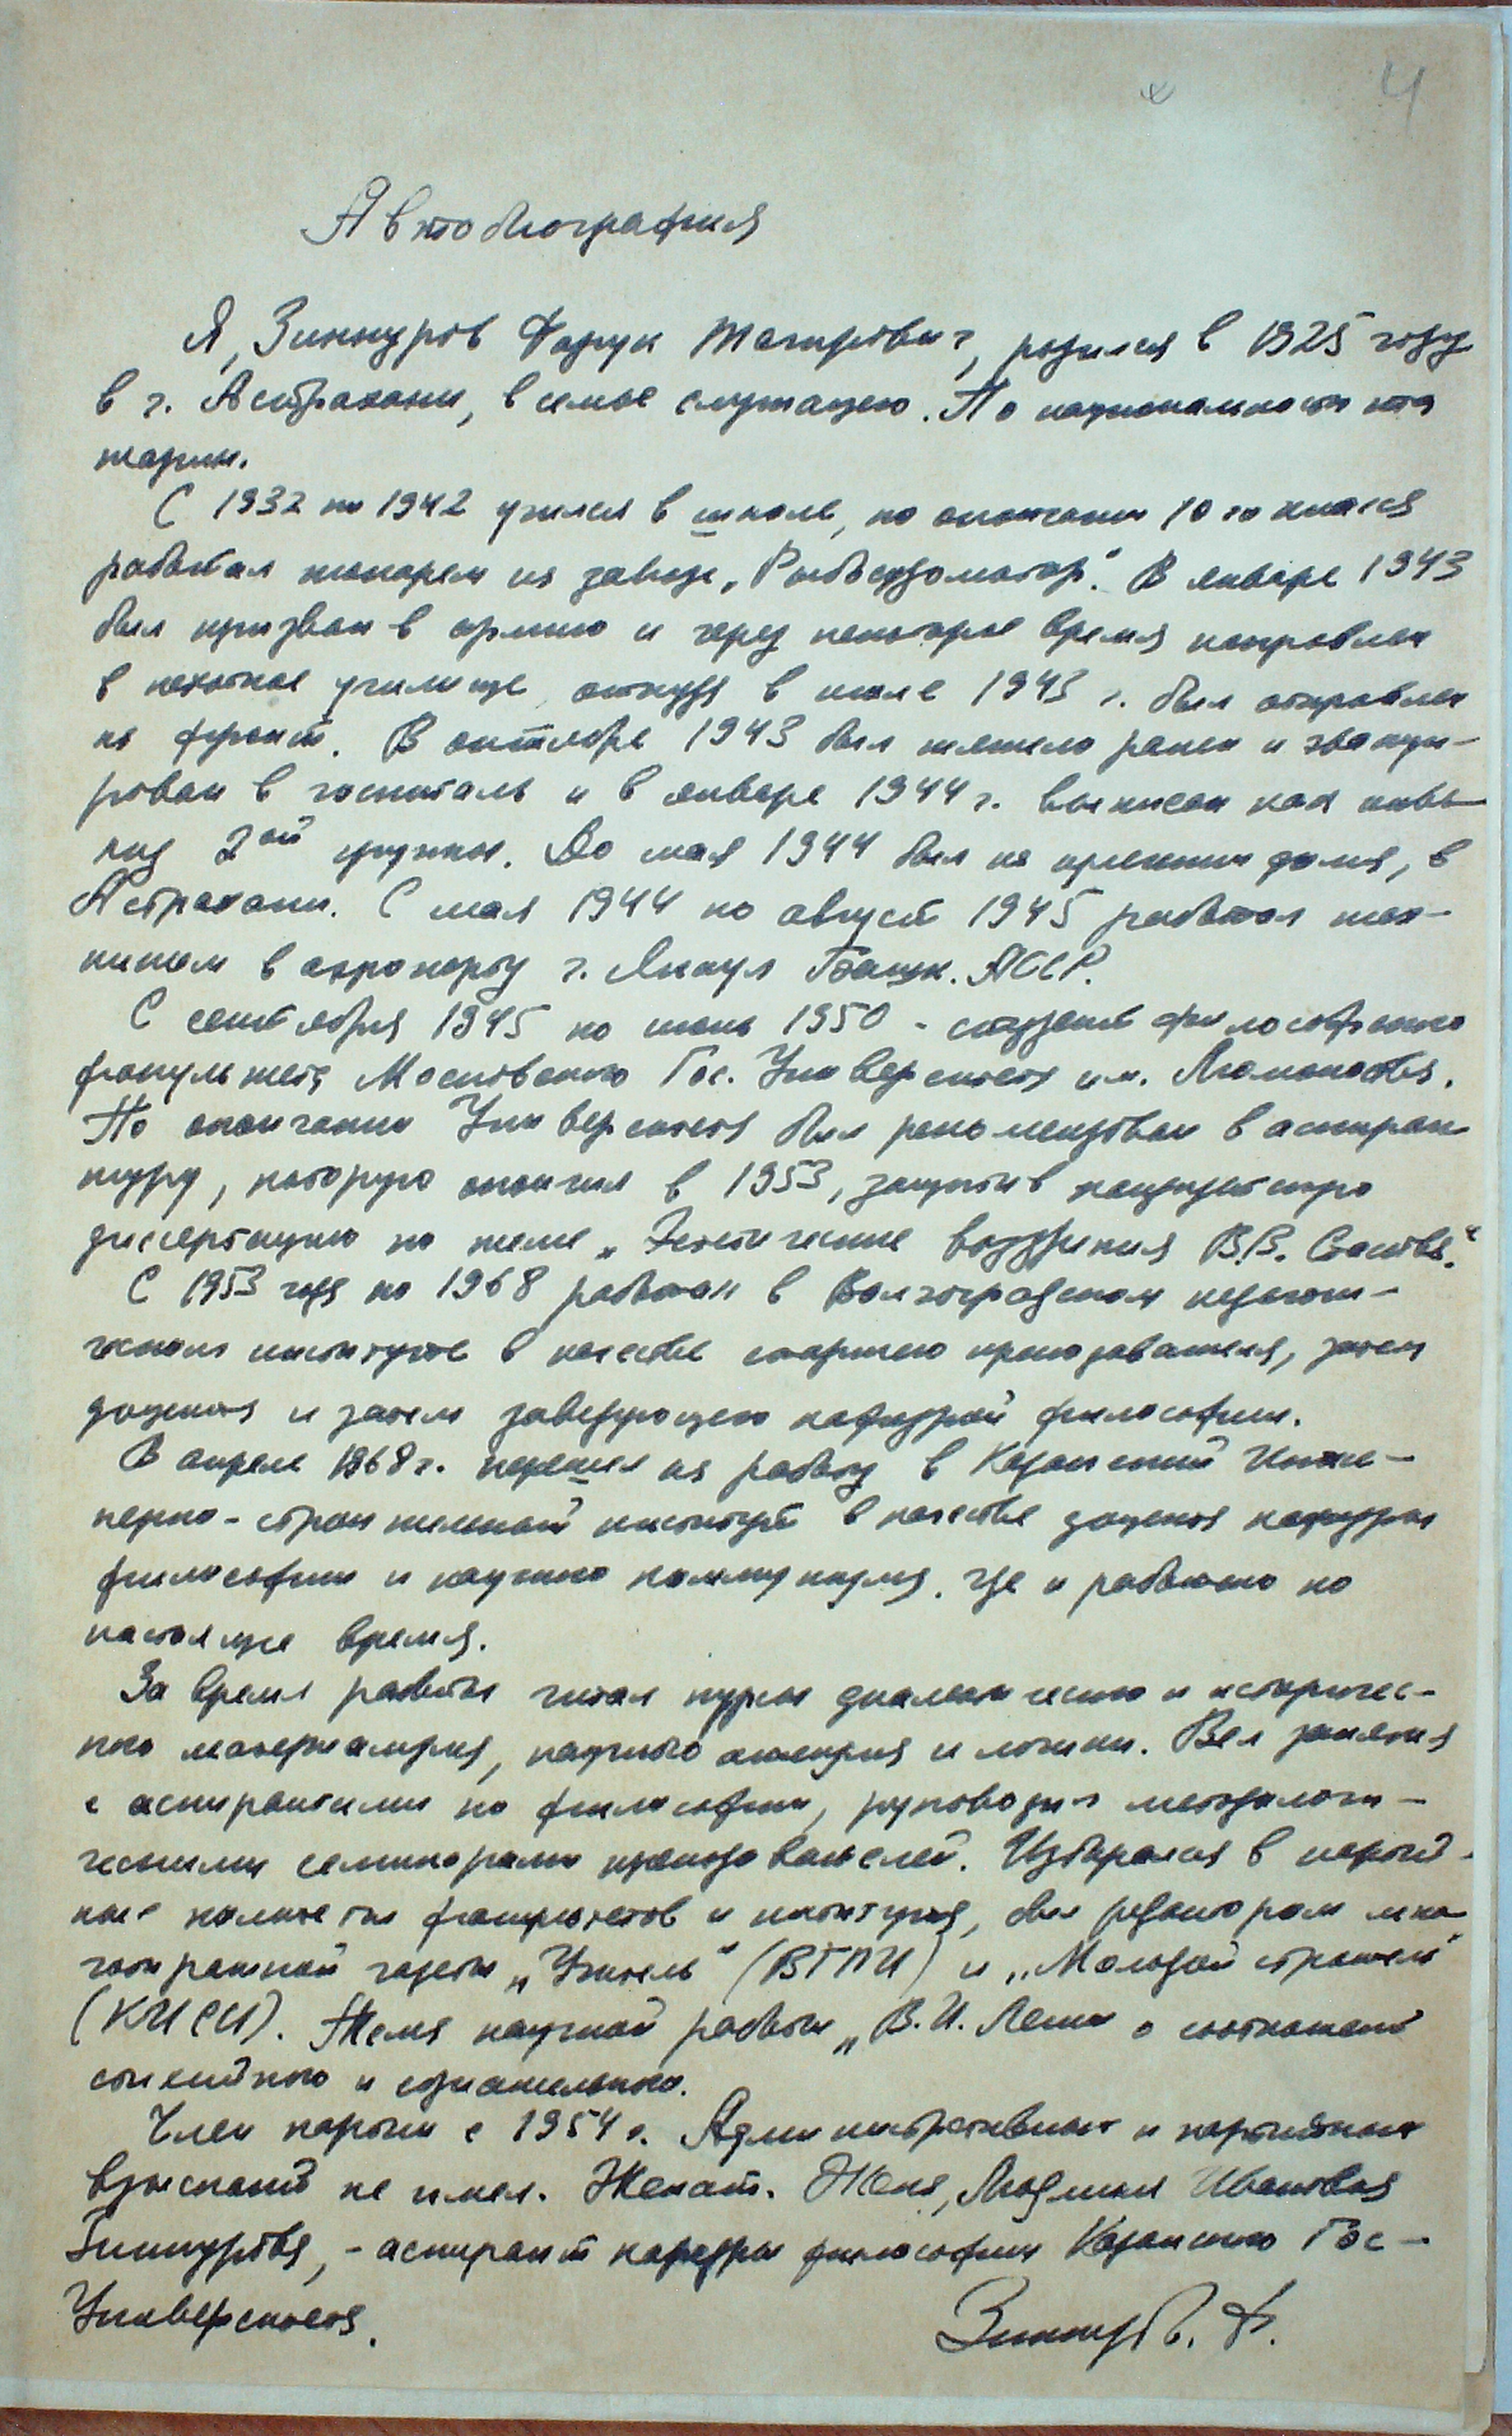 4
Автобиография
Я, Зиннуров Фарук Тагирович, родился в 1925 году
в г. Астрахани, в семье служащего. По национальности та
тарин.
С 1932 по 1942 учился в школе, по окончании 10го класса
работал токарем на заводе „Рыбсудомотор“. В январе 1943
был призван в армию и через некоторое время направлен
в пехотное училище, откуда в июле 1943 г. был отправлен
на фронт. В октябре 1943 был тяжело ранен и эвакуи-
рован в госпиталь и в январе 1944 г. выписан как инва-
лид 2ой группы. До мая 1944 был на излечении дома, в
Астрахани. С мая 1944 по август 1945 работал тех-
ником в аэропорту г. Янаул Башк. АССР.
С сентября 1945 по июнь 1950 - студент философского
факультета Московского Гос. Университета им. Ломоносова.
По окончании Университета был рекомендован в аспиран
туру, которую окончил в 1953, защитив кандидатскую
диссертацию по теме „Эстетические воззрения В.В. Стасова“.
С 1953 года по 1968 работал в Волгоградском педагоги-
ческом институте в качестве старшего преподавателя, затем
доцента и затем заведующего кафедрой философии.
В апреле 1968 г. перешел на работу в Казанский Инже-
нерно-строительный институт в качестве доцента кафедры
философии и научного коммунизма, где и работаю по
настоящее время.
За время работы читал курсы диалектического и историчес-
кого материализма, научного атеизма и логики. Вел занятия
с аспирантами по философии, руководил методологи-
ческими семинарами преподавателей. Избирался в партий-
ные комитеты факультетов и института, был редактором мно
готиражной газеты „Учитель“ (ВГПИ) и „Молодой строитель“
(КИСИ). Тема научной работы „В.И. Ленин о соотношении
стихийного и сознательного.
Член партии с 1954 г. Административных и партийных
взысканий не имел. Женат. Жена, Людмила Ивановна
Зиннурова, - аспирант кафедры философии Казанского Гос-
Университета.
Зиннуров. Ф.